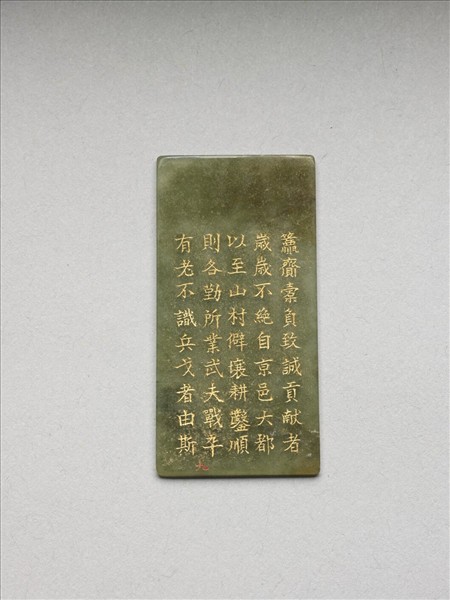 齎橐負致誠貢献者
歲歲不絶自京邑大都
以至山村僻壤耕鑿順
則各勤所業武夫戰卒
有老不識兵戈者由斯
九